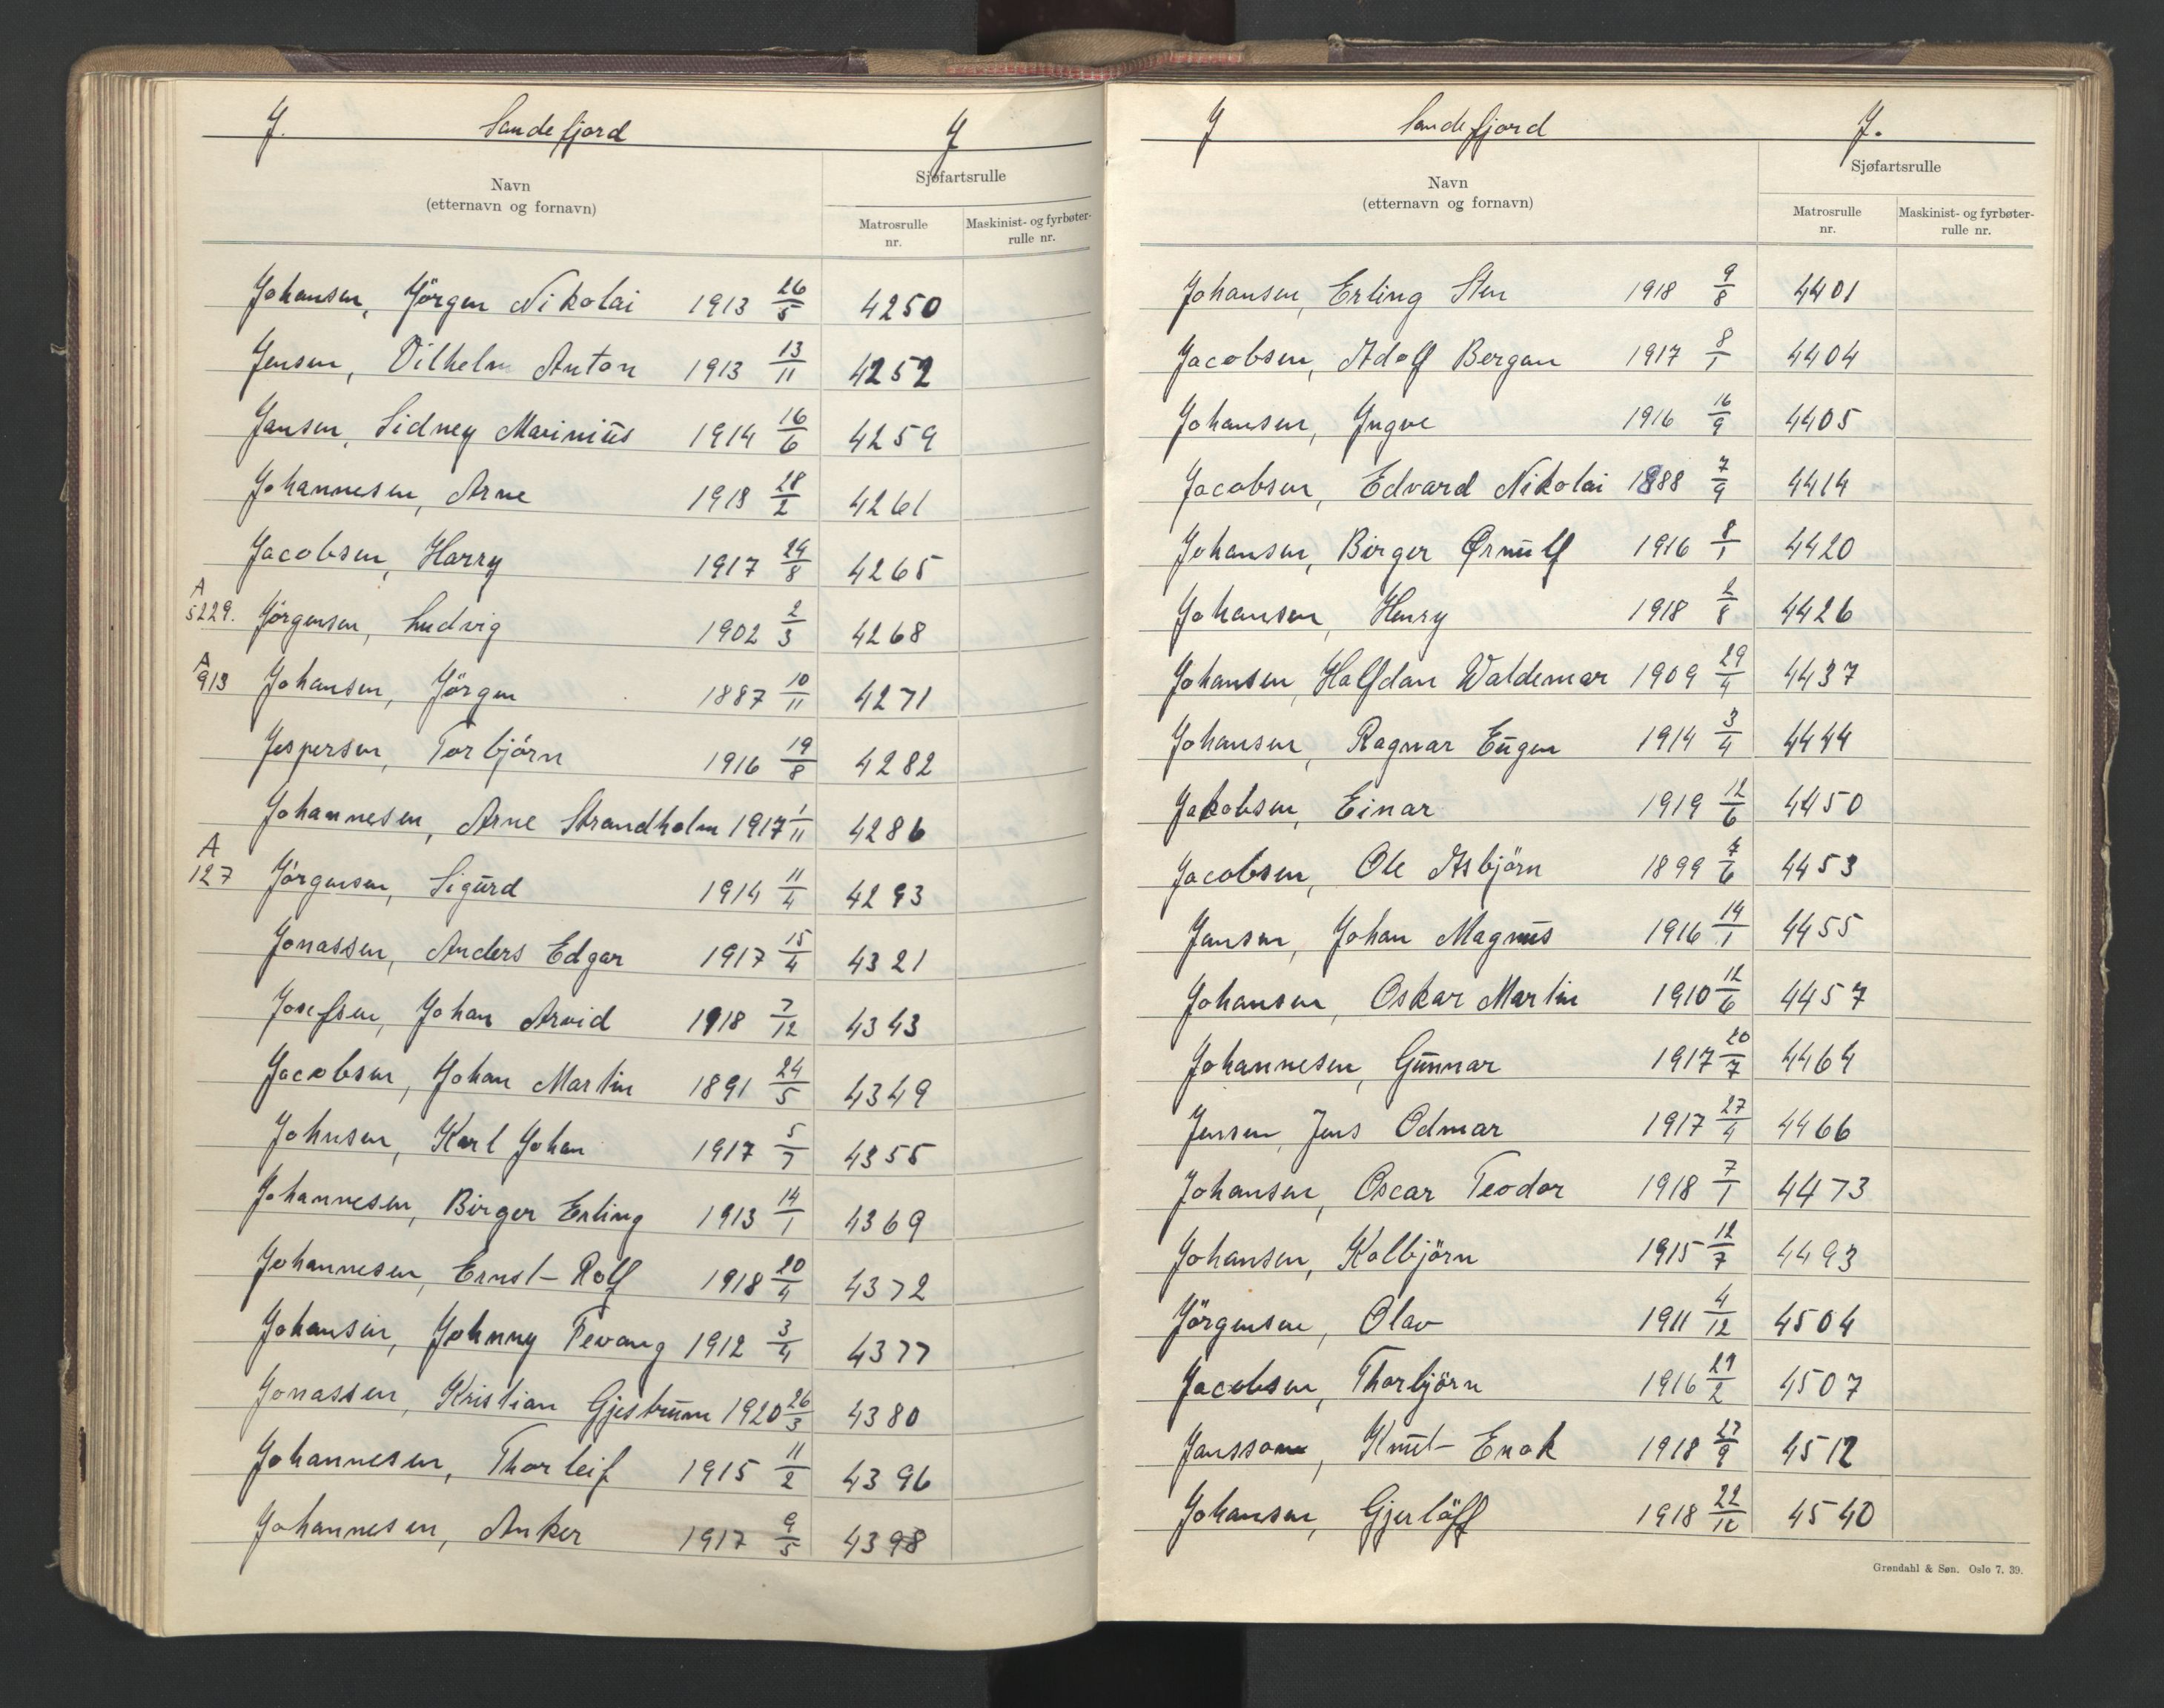 J. Sandefjord J
Navn
(etternavn og fornavn)
Sjøfartsrulle
Matrosrulle
nr.
Maskinist- og fyrbøter-
rulle nr.
Johansen, Jörgen Nikolai 1913 26/5 4250
Jensen, Vilhelm Anton 1913 13/11 4252
Jansen, Sidney Marinius 1914 16/6 4259
Johannesen, Arne 1918 28/2 4261
Jacobsen, Harry 1917 24/8 4265
A
5229. Jørgensen, Ludvig 1902 2/3 4268
A
913 Johansen, Jörgen 1887 10/11 4271
Jespersen, Torbjörn 1916 19/8 4282
Johannesen, Arne Strandholm 1917 1/11 4286
A
127 Jörgensen, Sigurd 1914 11/4 4293
Jonassen, Anders Edgar 1917 15/4 4321
Josefsen, Johan Arvid 1918 7/12 4343
Jacobsen, Johan Martin 1891 24/5 4349
Johnsen, Karl Johan 1917 5/7 4355
Johannesen, Birger Erling 1913 14/1 4369
Johannesen, Ernst-Rolf 1918 20/4 4372
Johansen, Johnny Tevang 1912 3/4 4377
Jonassen, Kristian Gjestrum 1920 26/3 4380
Johannesen, Thorleif 1915 11/2 4396
Johannesen, Anker 1917 9/5 4398
J Sandefjord J.
Navn
(etternavn og fornavn)
Sjøfartsrulle
Matrosrulle
nr.
Maskinist- og fyrbøter-
rulle nr.
Johansen, Erling Sten 1918 9/8 4401
Jacobsen, Adolf Bergan 1917 8/1 4404
Johansen, Yngve 1916 16/9 4405
Jacobsen, Edvard Nikolai 1888 7/9 4414
Johansen, Birger Ørnulf 1916 8/1 4420
Johansen, Henry 1918 2/8 4426
Johansen, Halfdan Waldemar 1909 29/4 4437
Johansen, Ragnar Eugen 1914 3/4 4444
Jakobsen, Einar 1919 12/6 4450
Jacobsen, Ole Asbjörn 1899 7/6 4453
Jansen, Johan Magnus 1916 14/1 4455
Johansen, Oskar Martin 1910 12/6 4457
Johannesen, Gunnar 1917 20/7 4464
Jensen, Jens Odmar 1917 27/4 4466
Johansen, Oscar Teodor 1918 7/1 4473
Johansen, Kolbjörn 1915 12/7 4493
Jörgensen, Olav 1911 4/12 4504
Jacobsen, Thorbjörn 1916 29/2 4507
Jansson, Knut-Enok 1918 27/9 4512
Johansen, Gjerlöff 1918 22/12 4540
Grøndahl & Søn. Oslo 7. 39.